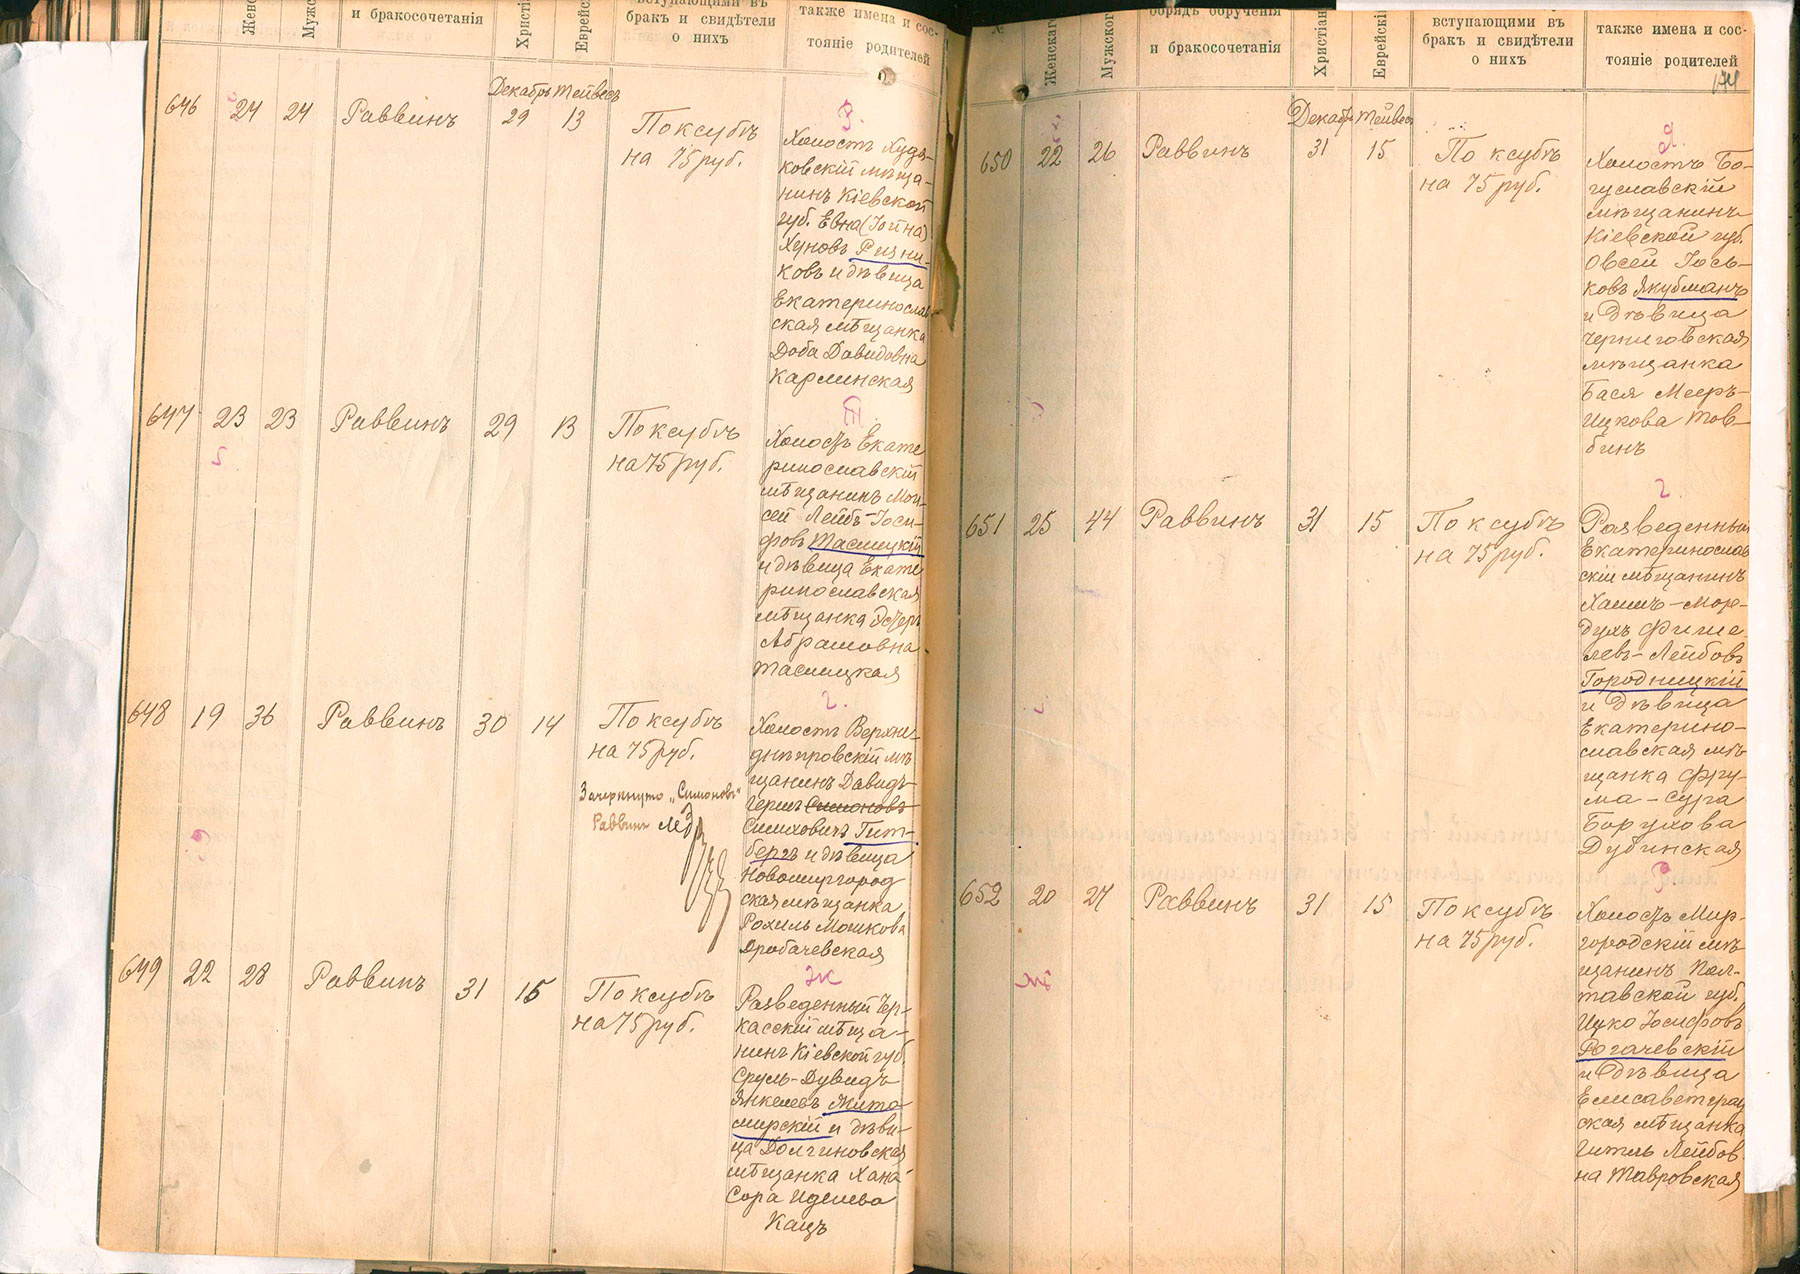 Женс
Мужс
и бракосочетанія
Христіа
Еврейс
вступающими въ
бракъ и свидѣтели
о нихъ
также имена и сос-
тояніе родителей
646
24
24
Раввинъ
Декабрь Тейвесъ
29
13
По ксубѣ
на 75 руб.
Холостъ Ходь-
ковскій мѣща-
нинъ Кіевской
губ. Евна (Іойна)
Хуновъ Ризни-
ковъ и дѣвица
Екатеринослав
ская мѣщанка
Доба Давидовна
Карлинская
647
23
23
Раввинъ
29
13
По ксубѣ
на 75 руб.
Т.
Холостъ Екате
ринославскій
мѣщанинъ Мои-
сей Лейбъ-Іоси-
фовъ Таслицкій
и дѣвица Екате
ринославская
мѣщанка Эстеръ
Абрамовна
Таслицкая
648
19
36
Раввинъ
30
14
По ксубѣ
на 75 руб.
Зачеркнуто „Симоновъ"
Раввинъ
Г.
Холостъ Верхне-
днѣпровскій мѣ
щанинъ Давидъ-
Гершъ Симоновъ
Симховичъ Гит-
бергъ и дѣвица
Новомиргород
ская мѣщанка
Рохиль Мошкова
Дробачевская
649
22
28
Раввинъ
31
15
По ксубѣ
на 75 руб.
Ж
Разведенный Чер-
касскій мѣща-
нинъ Кіевской губ
Сруль-Дувидъ
Янкелевъ Жито-
мирскій и дѣви-
ца Долгиновская
мѣщанка Хана
Сора Иделева
Кацъ
№
Женскаго
Мужского
обрядъ обрученія
и бракосочетанія
Христіан
Еврейскі
вступающими въ
бракъ и свидѣтели
о нихъ
также имена и сос-
тояніе родителей
650
22
26
Раввинъ
Декабрь Тейвесъ
31
15
По ксубѣ
на 75 руб.
Я.
Холостъ Бо-
гуславскій
мѣщанинъ
Кіевской губ.
Овсей Іось-
ковъ Якубманъ
и дѣвица
Черниговская
мѣщанка
Бася Мееръ-
Ицкова Тов-
бинъ
651
25
44
Раввинъ
31
15
По ксубѣ
на 75 руб.
Г.
Разведенный
Екатеринослав
скій мѣщанинъ
Хаимъ-Мор-
духъ Фише-
левъ-Лейбовъ
Городницкій
и дѣвица
Екатерино-
славская мѣ-
щанка Фру-
ма-Сура
Борухова
Дубинская
652
20
27
Раввинъ
31
15
По ксубѣ
на 75 руб.
Р
Холостъ Мир-
городскій мѣ
щанинъ Пол-
тавской губ.
Ицко Іосифовъ
Рогачевскій
и дѣвица
Елисаветград
ская мѣщанка
Гитль Лейбов-
на Тавровская